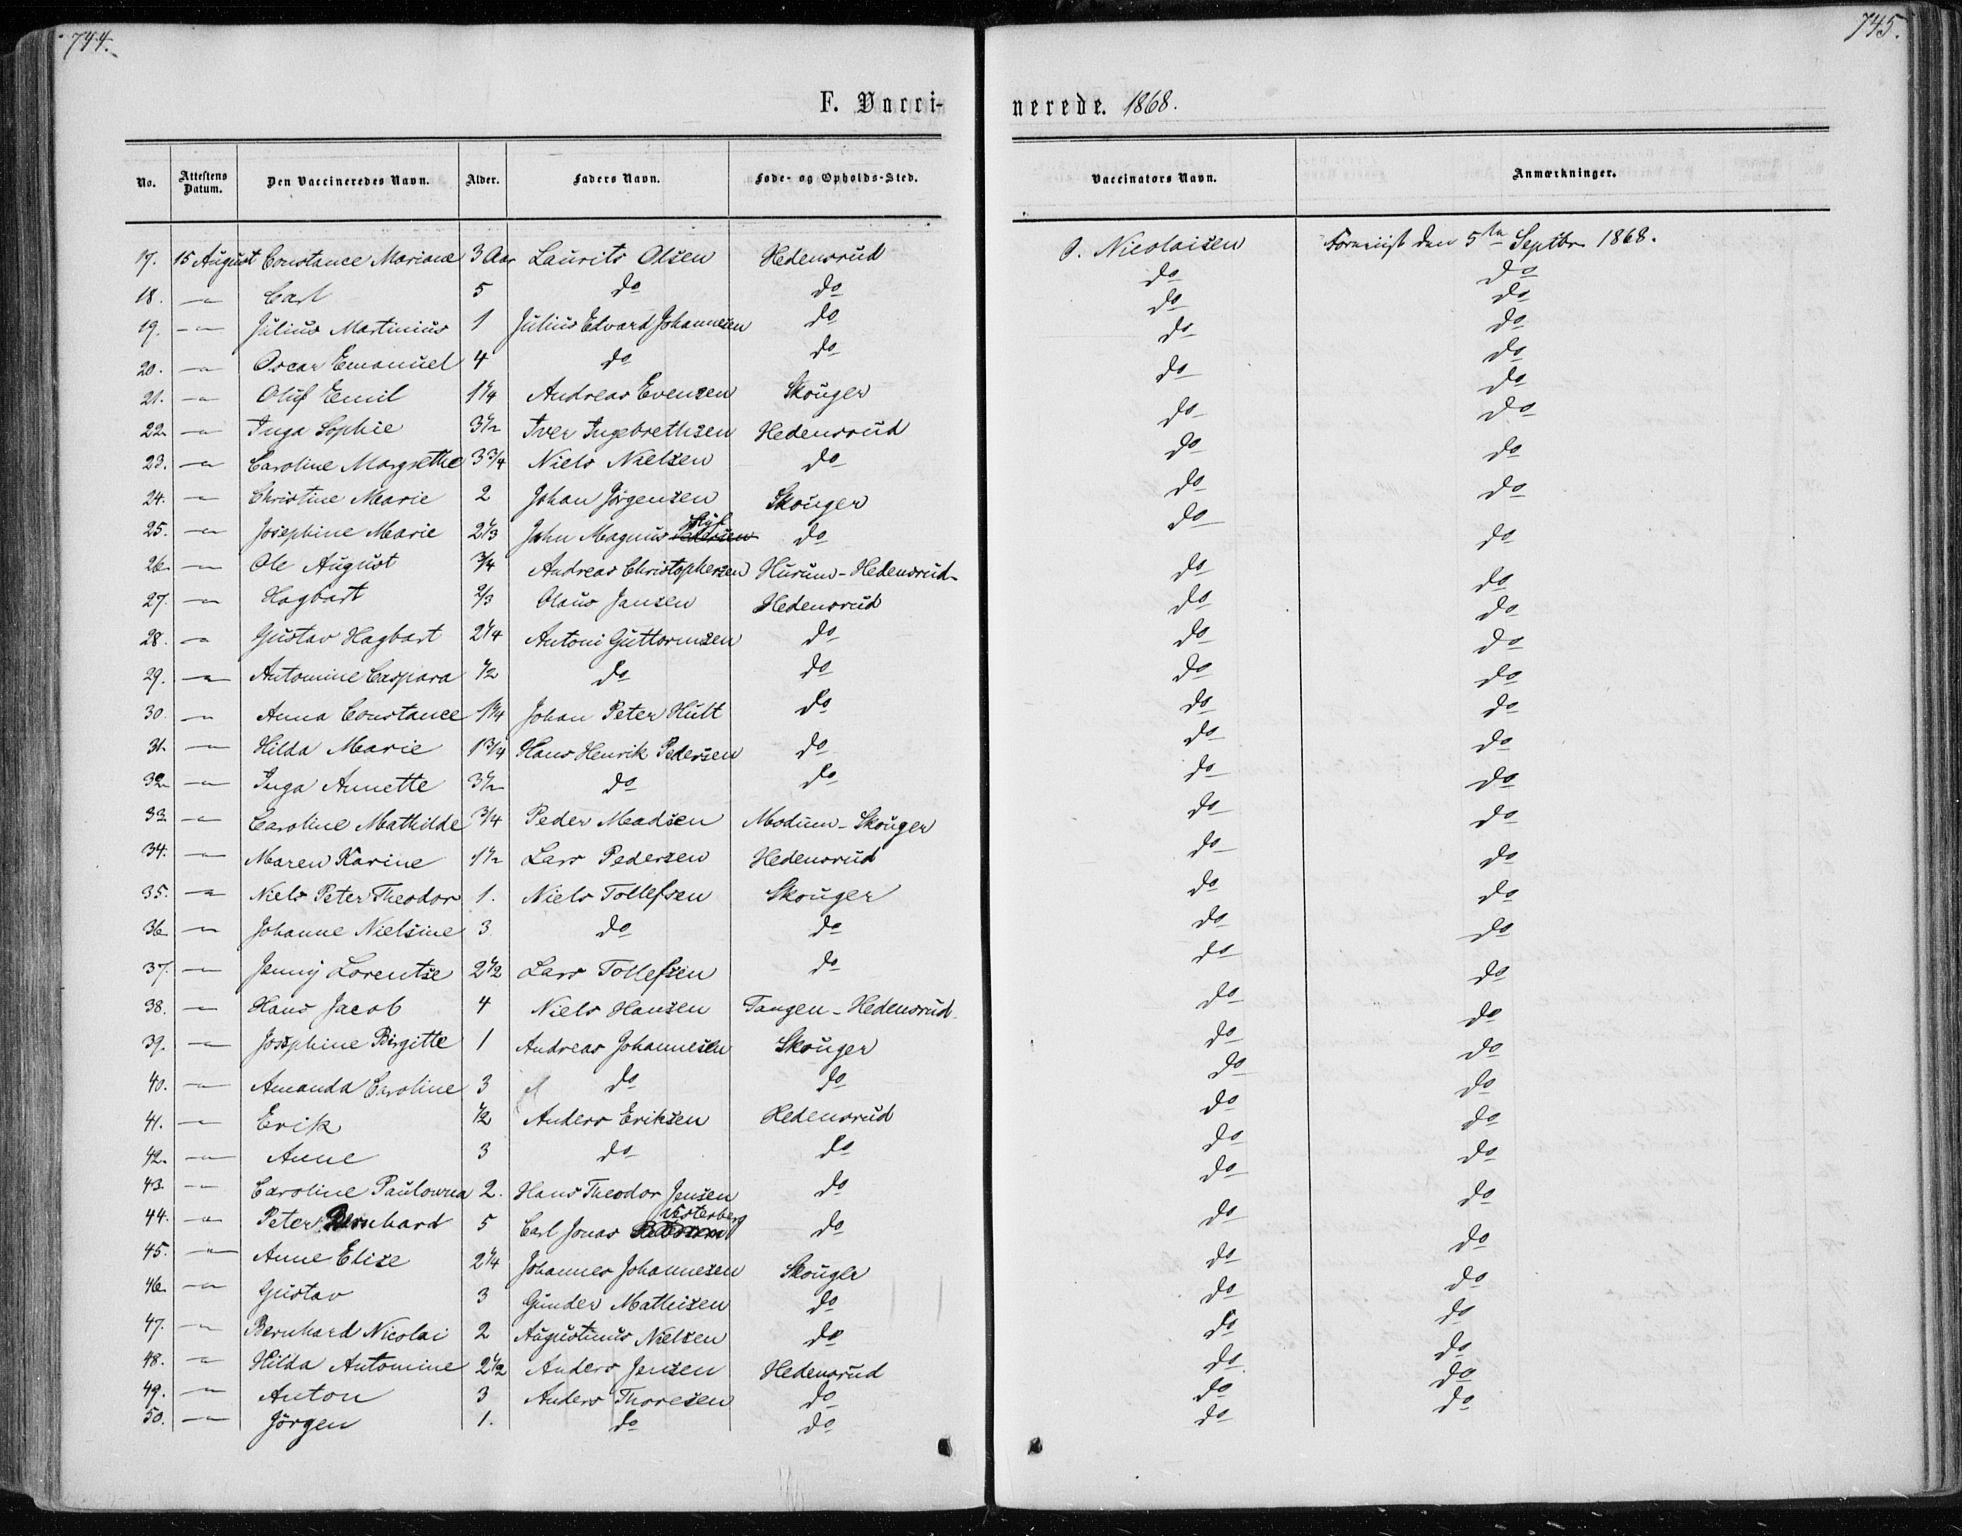 744.
745.
F. Vacci-
nerede. 1868.
No. Attestens Datum. Den Vaccineredes Navn. Alder. Faders Navn. Føde- og Opholds-Sted. Vaccinators Navn. Anmærkninger.
17. 15 August Constance Mariane 3 Aar Laurits Olsen Hedensrud Nicolaisen den 5te Septbr 1868.
18. -"- Carl 5 do do do do
19. -"- Julius Martinius 1 Julius Edvard Johannesen do do do
20. -"- Oscar Emanuel 4 do do do do
21. -"- Oluf Emil 1 1/4 Andreas Evensen Skouger do do
22. -"- Inga Sophie 3 1/2 Iver Ingebrethsen Hedensrud do do
23. -"- Caroline Margrethe 3 3/4 Niels Nielsen do do do
24. -"- Christine Marie 2 Johan Jørgensen Skouger do do
25. -"- Josephine Marie 2 1/3 John Magnus do do do
26. -"- Ole August 3/4 Andreas Christophersen Hurum-Hedensrud do do
27. -"- Hagbart 2/3 Olaus Jansen Hedensrud do do
28. -"- Gustav Hagbart 2 1/4 Antoni Guttormsen do do do
29. -"- Antomine Caspara 1/2 do do do do
30. -"- Anna Constance 1 1/4 Johan Peter Hult do do do
31. -"- Hilda Marie 1 3/4 Hans Henrik Pedersen do do do
32. -"- Inga Annette 3 1/2 do do do do
33. -"- Caroline Mathilde 3/4 Peder Madsen Modum-Skouger do do
34. -"- Maren Karine 1 1/2 Lars Pedersen Hedensrud do do
35. -"- Niels Peter Theodor 1. Niels Tollefsen Skouger do do
36. -"- Johanne Nielsine 3. do do do do
37. -"- Jenny Lorentse 2 1/2 Lars Tollefsen do do do
38. -"- Hans Jacob 4 Niels Hansen Tangen-Hedensrud do do
39. -"- Josephine Birgitte 1 Andreas Johannesen Skouger do do
40. -"- Amanda Caroline 3 do do do do
41. -"- Erik 1/2 Anders Eriksen Hedensrud do do
42. -"- Anne 3 do do do do
43. -"- Caroline Paulowna 2. Hans Theodor Jensen do do do
44. -"- Peter Bernhard 5 Carl Jonas Vesterberg do do do
45. -"- Anne Elise 2 1/4 Johannes Johannesen Skouger do do
46. -"- Gustav 3 Gunder Mathisen do do do
47. -"- Bernhard Nicolai 2 Augustinus Nielsen do do do
48. -"- Hilda Antomine 2 1/2 Anders Jensen Hedensrud do do
49. -"- Anton 3 Anders Thoresen do do do
50. -"- Jörgen 1. do do do do